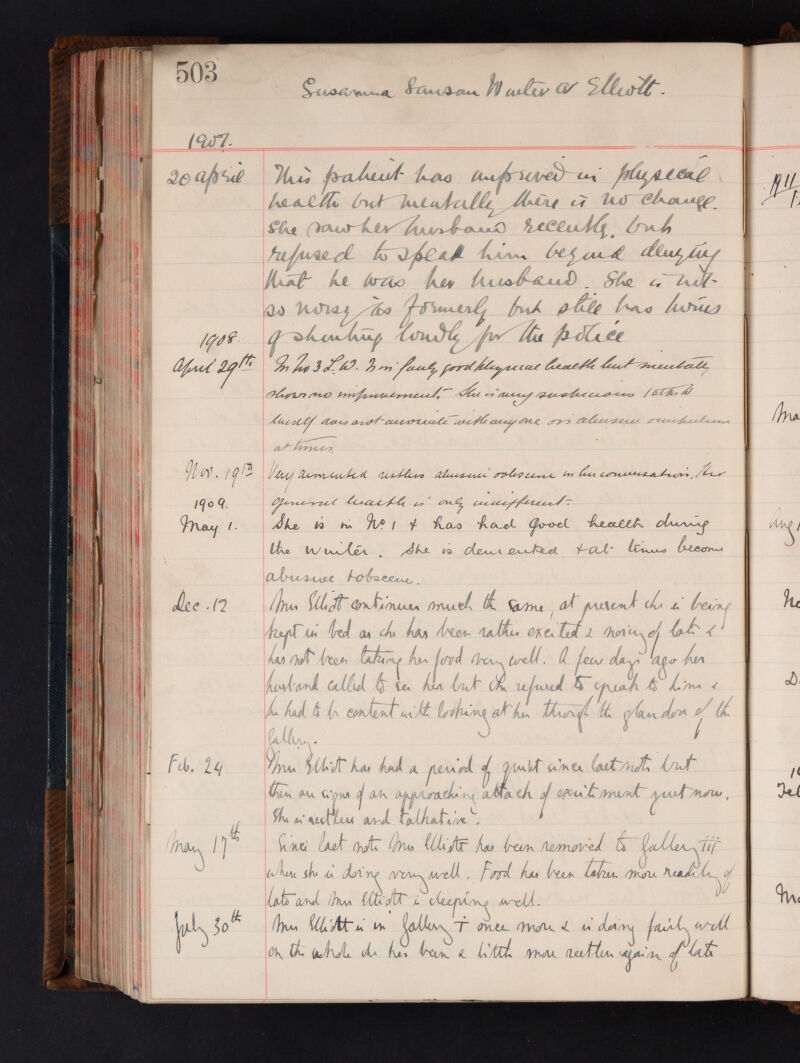 503
Susanna Sansom Winter or Elliott.
1907.
20 april This patient has improved in physical
health but mentally there is no change.
She saw her husband recently, but
refused to speak him beyond denying
that he was her husband. She is not
so noisy as formerly but still has turns
1908. of shouting loudly for the police
April 29th In No 3 L.W. Is in fairly good physical health but mentally
shows no improvement. She is very suspicious talks to
herself does not associate with anyone or is abusive
at times.
Nov. 19th Very demented restless abusive obscene in her conversation. Her
1909. general health is only indifferent.
May 1. She is in No. 1 & has had good health during
the winter. She is demented & at times becomes
abusive & obscene.
Dec. 12 Mrs Elliott continues much the same, at present she is being
kept in bed as she has been rather excited & noisy of late &
has not been taking her food very well. A few days ago her
husband called to see her but she refused to speak to him &
he had to be content with looking at her through the glass door of the
Gallery.
Feb. 24 Mrs Elliott has had a period of quiet since last note but
there are signs of an approaching attack of excitement just now.
She is restless and talkative.
May 17th Since last note Mrs Elliott has been removed to Gallery III
where she is doing very well. Food has been taken more readily of
late and Mrs Elliott is sleeping well.
July 30th Mrs Elliott is in Gallery I once more & is doing fairly well
on the whole she has been a little more restless again of late
1911
Ma
Aug 1
No
D
Feb